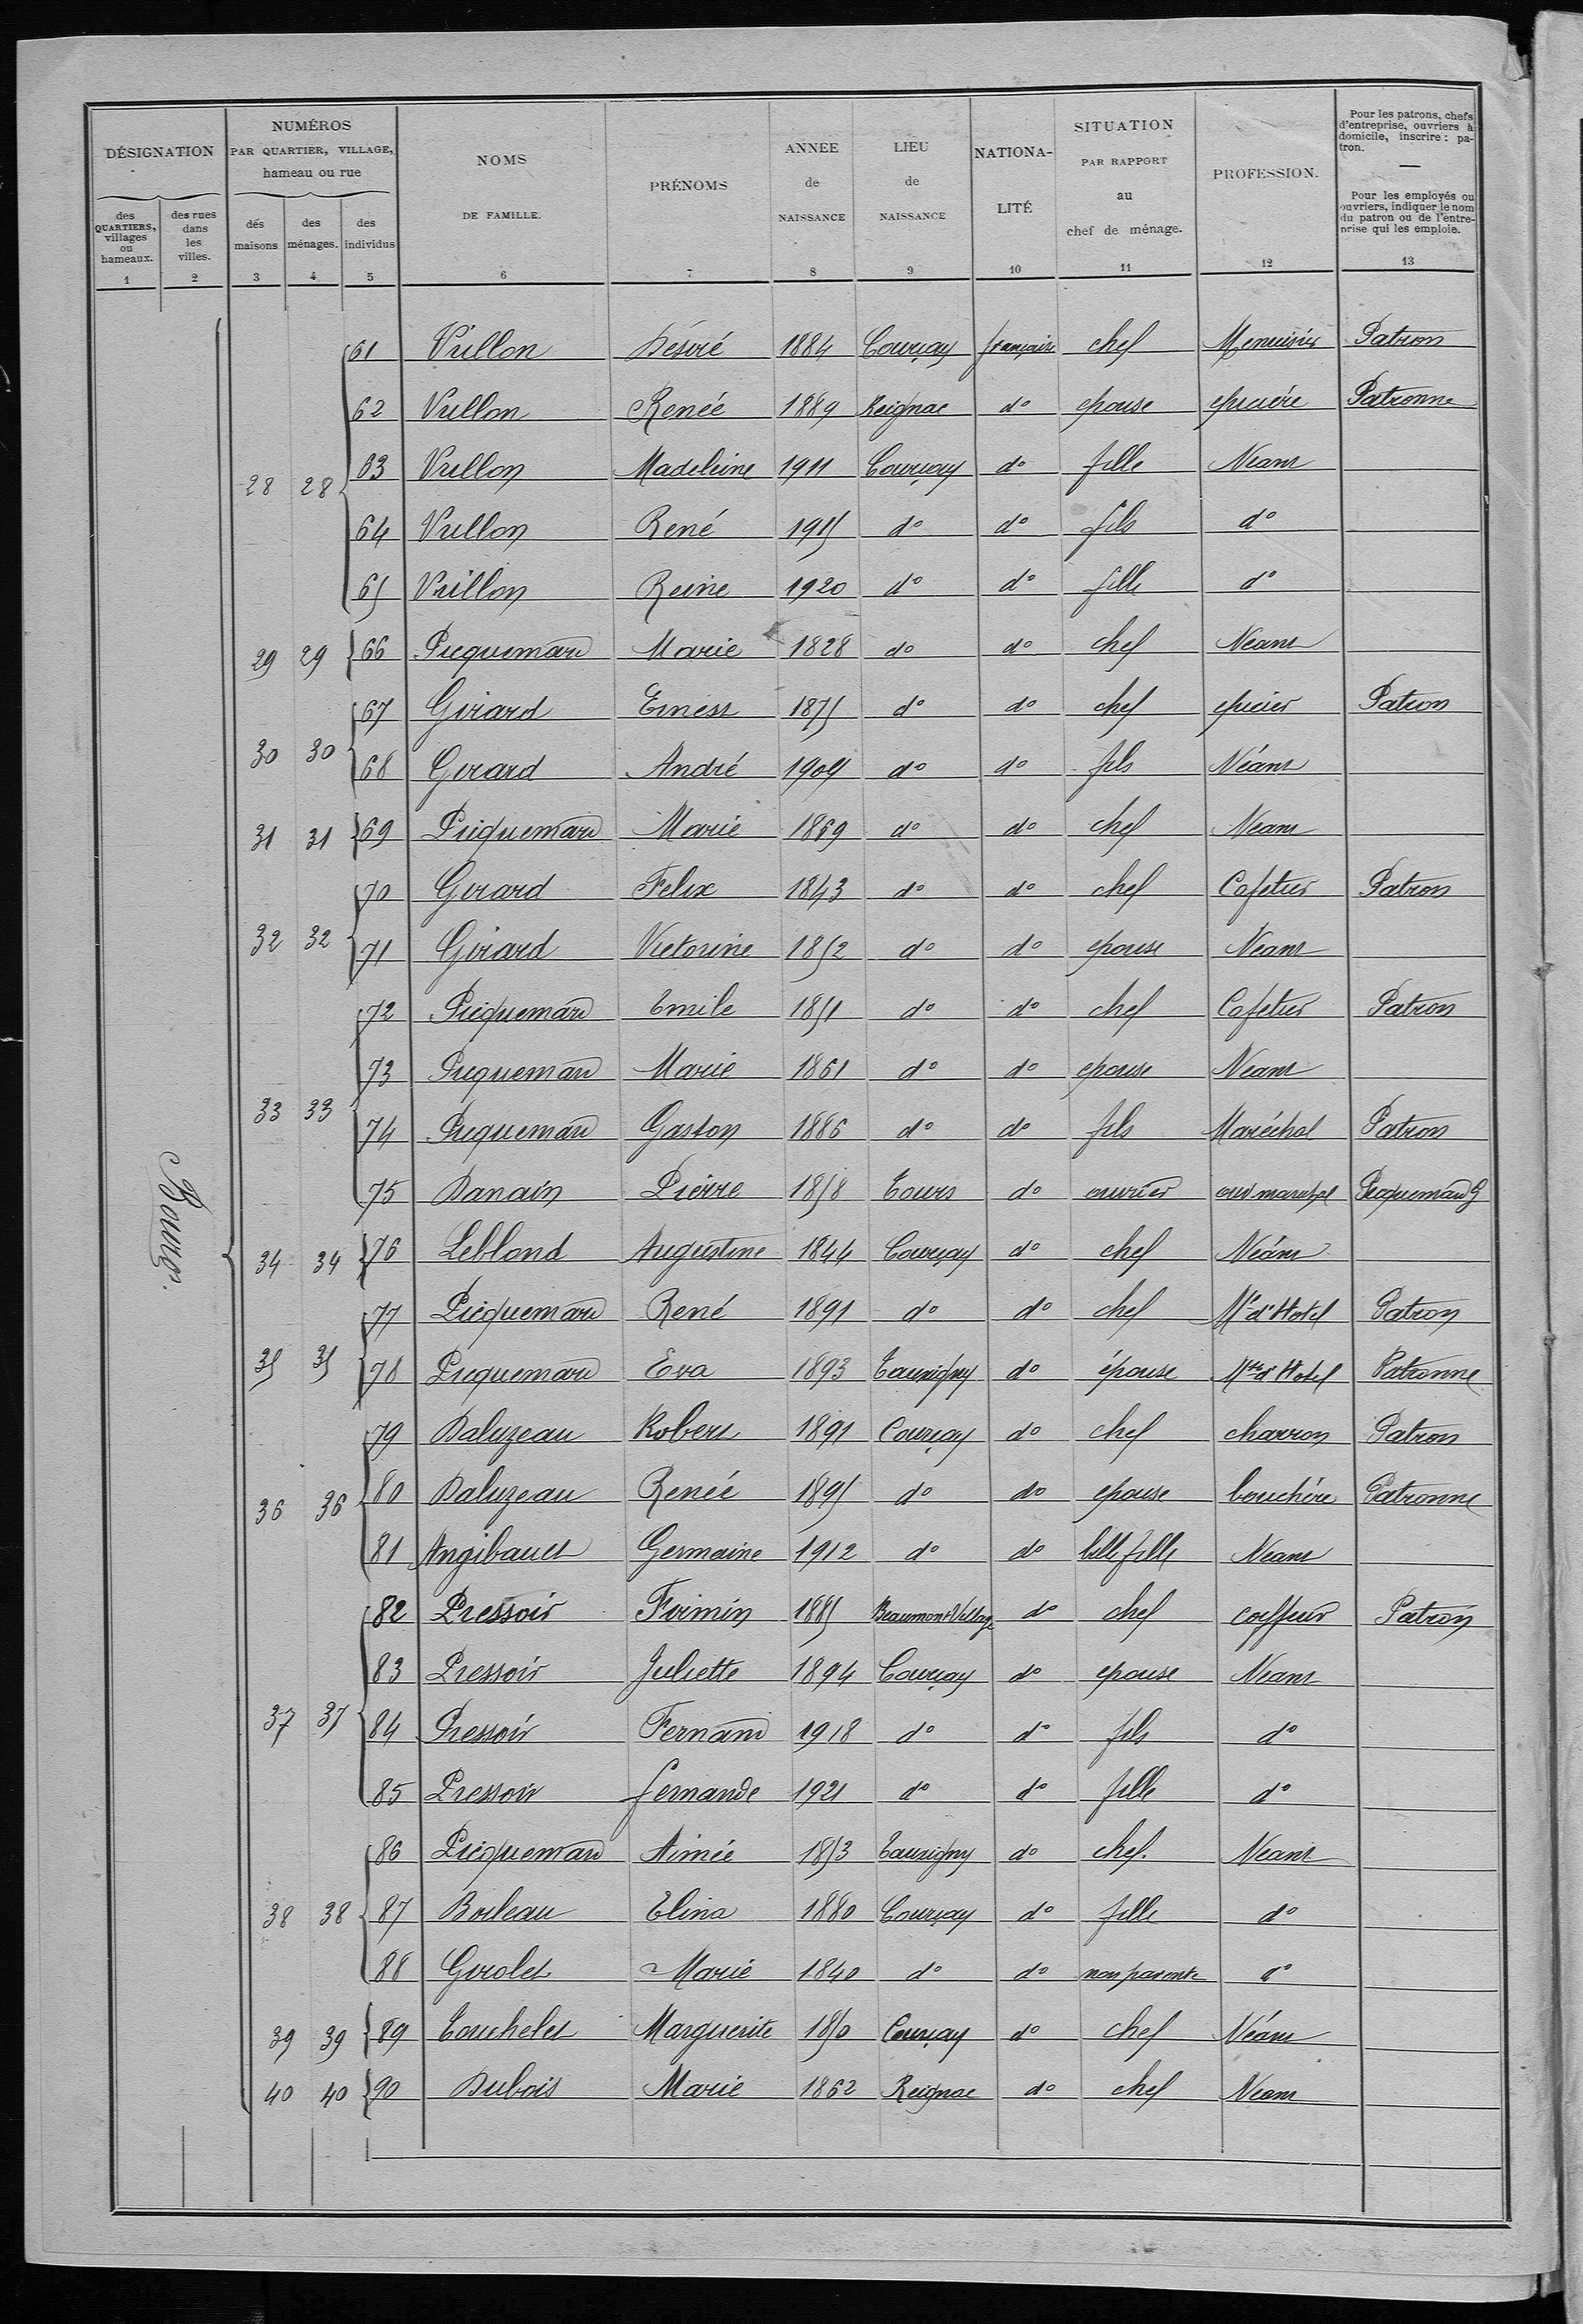 DÉSIGNATION
NUMÉROS
PAR QUARTIER, VILLAGE,
hameau ou rue
des QUARTIERS, villages ou hameaux.
des rues dans les villes.
dés maisons
des ménages.
des individus
NOMS
DE FAMILLE.
PRÉNOMS
ANNÉE
de
NAISSANCE
LIEU
de
NAISSANCE
NATIONA-
LITÉ
SITUATION
PAR RAPPORT
au
chef de ménage.
PROFESSION.
Pour les patrons, chefs
d'entreprise, ouvriers à
domicile, inscrire : pa-
tron.
Pour les employés ou
ouvriers, indiquer le nom
du patron ou de l'entre-
prise qui les emploie.
1 2 3 4 5 6 7 8 9 10 11 12 13
Bourg.
61 Vrillon Désiré 1884 Courçay française chef Menuisier Patron
62 Vrillon Renée 1889 Reignac do epouse epicière Patronne
28 28 63 Vrillon Madeleine 1911 Courçay do fille Neant
64 Vrillon René 1915 do do fils do
65 Vrillon Reine 1920 do do fille do
29 29 66 Picquemard Marie 1828 do do chef Neant
67 Girard Ernest 1875 do do chef epicier Patron
30 30 68 Girard André 1904 do do fils Néant
31 31 69 Picquemard Marie 1869 do do chef Neant
70 Girard Felix 1843 do do chef Cafetier Patron
32 32 71 Girard Victorine 1852 do do epouse Neant
72 Picquemard Emile 1851 do do chef Cafetier Patron
73 Picquemard Marie 1861 do do epouse Neant
33 33 74 Picquemard Gaston 1886 do do fils Maréchal Patron
75 Danain Pierre 1858 Tours do ouvrier ouv marechal Picquemard G
34 34 76 Leblond Augustine 1844 Courçay do chef Néant
77 Picquemard René 1891 do do chef Me d'Hotel Patron
35 35 78 Picquemard Eva 1893 Tauxigny do épouse Mtre d'Hotel Patronne
79 Daluzeau Robert 1891 Courçay do chef charron Patron
36 36 80 Daluzeau Renée 1895 do do epouse bouchère Patronne
81 Angibault Germaine 1912 do do belle fille Neant
82 Pressoir Firmin 1885 Beaumont-Village do chef coiffeur Patron
83 Pressoir Juliette 1894 Courçay do epouse Neant
37 37 84 Pressoir Fernand 1918 do do fils do
85 Pressoir fernande 1921 do do fille do
86 Picquemard Aimée 1853 Tauxigny do chef. Neant
38 38 87 Boileau Elina 1880 Courçay do fille do
88 Girolet Marie 1840 do do non parente do
39 39 89 Touchelet Marguerite 1850 Courçay do chef Néant
40 40 90 Dubois Marie 1862 Reignac do chef Neant